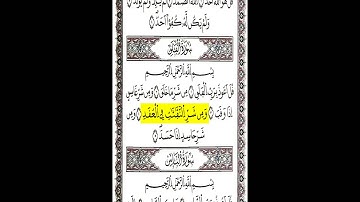 قُلْ هُوَ اللَّهُ أَحَدٌ ۝ اللَّهُ الصَّمَدُ ۝ لَمْ يَلِدْ وَلَمْ يُولَدْ ۝
وَلَمْ يَكُنْ لَهُ كُفُوًا أَحَدٌ ۝
سُورَةُ الْفَلَقِ
بِسْمِ اللَّهِ الرَّحْمَٰنِ الرَّحِيمِ
قُلْ أَعُوذُ بِرَبِّ الْفَلَقِ ۝ مِنْ شَرِّ مَا خَلَقَ ۝ وَمِنْ شَرِّ غَاسِقٍ
إِذَا وَقَبَ ۝ وَمِنْ شَرِّ النَّفَّٰثَٰتِ فِي الْعُقَدِ ۝ وَمِنْ
شَرِّ حَاسِدٍ إِذَا حَسَدَ ۝
سُورَةُ النَّاسِ
بِسْمِ اللَّهِ الرَّحْمَٰنِ الرَّحِيمِ